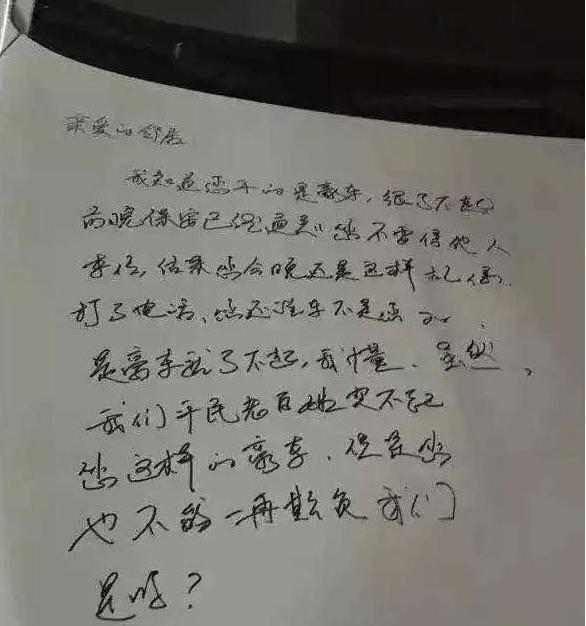 亲爱的邻居
我知道您开的是豪车,很了不起
前晚保安已经通知您不要停他人
车位,结果您今晚还是这样 保安
打了电话、您还说车不是您的
是豪车就了不起,我懂、虽然,
我们平民老百姓买不起
您这样的豪车、但是您
也不能一再欺负我们
是吗?